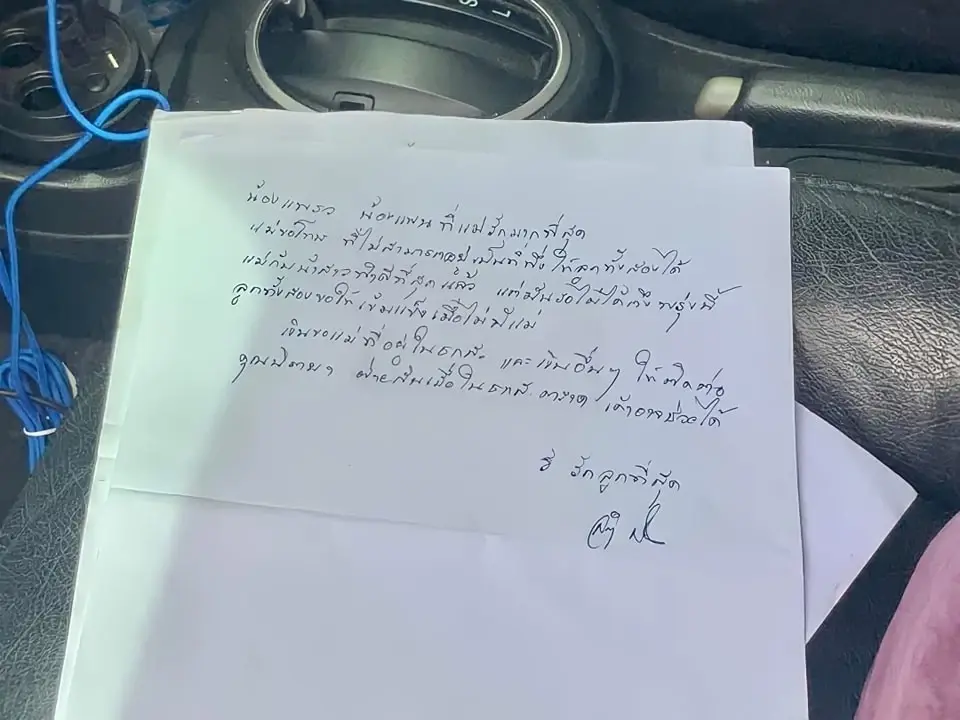 น้องแพรว น้องแพน ที่แม่รักมากที่สุด
แม่ขอโทษ ที่ไม่สามารถอยู่เป็นที่พึ่ง ให้ลูกทั้งสองได้
แม่กับน้าสาวทำดีที่สุดแล้ว แต่มันรอไม่ได้ถึงพรุ่งนี้
ลูกทั้งสองขอให้เข้มแข็งเมื่อไม่มีแม่
เงินของแม่ที่อยู่ในธกส. และเงินอื่นๆ ให้ติดต่อ
คุณ ฝ่ายสินเชื่อในธกส. ตลาด เค้าอาจช่วยได้
รักลูกที่สุด
S
L